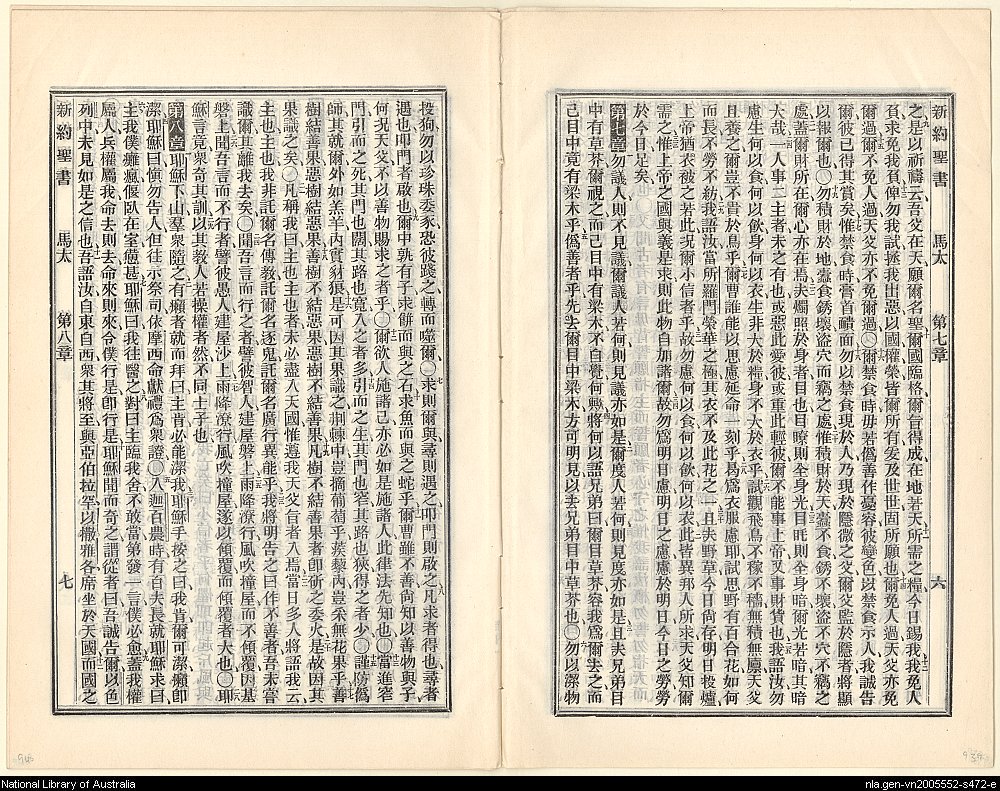 新約聖書 馬太 第七章 六
之是以祈禱云吾父在天願爾名聖爾國臨格爾旨得成在地若天所需之糧今日錫我我免人
負求免我負俾勿我試拯我出惡以國權榮皆爾所有爰及世世固所願也爾免人過天父亦免
爾過爾不免人過天父亦不免爾過○爾禁食時毋若僞善作憂容彼變色以禁食示人我誠告
爾彼已得其賞矣惟禁食時膏首靧面而勿以禁食現於人乃現於隱微之父爾父監於隱者將顯
以報爾也○勿積財於地蠹食銹壞盜穴而竊之處惟積財於天蠹不食銹不壞盜不穴不竊之
處蓋爾財所在爾心亦在焉夫燭照於身者目也目瞭則全身光目眊則全身暗爾光若暗其暗
大哉一人事二主者未之有也或惡此愛彼或重此輕彼爾不能事上帝又事財貨也我語汝勿
慮生何以食何以飲身何以衣生非大於糧身不大於衣乎試觀飛鳥不稼不穡無積無廩天父
且養之爾豈不貴於鳥乎爾曹誰能以思慮延命一刻乎曷爲衣服慮耶試思野有百合花如何
而長不勞不紡我語汝當所羅門榮華之極其衣不及此花之一且夫野草今日尚存明日投爐
上帝猶衣被之若此況爾小信者乎故勿慮何以食何以飲何以衣此皆異邦人所求夫天父知爾
需之惟上帝之國與義是求則此物自加諸爾故勿爲明日慮明日之慮慮於明日今日之勞勞
於今日足矣
第七章勿議人則不見議爾議人若何則見議亦如是爾度人若何則見度亦如是且夫兄弟目
中有草芥爾視之而己目中有梁木不自覺何歟將何以語兄弟曰爾目草芥容我爲爾去之而
己目中竟有梁木乎僞善者乎先去爾目中梁木方可明見以去兄弟目中草芥也○勿以潔物
投狗勿以珍珠委豕恐彼踐之轉而噬爾○求則爾與尋則遇之叩門則啟之凡求者得也尋者
遇也叩門者啟也爾中孰有子求餅而與之石求魚而與之蛇乎爾曹雖不善尚知以善物與子
何況天父不以善物賜求之者乎○爾欲人施諸己亦必如是施諸人此律法先知也○當進窄
門引而之死其門也闊其路也寬入之者多引而之生其門也窄其路也狹得之者少○謹防僞
師其就爾外如羔羊內實豺狼是可因其果識之荊棘中豈摘葡萄乎蒺藜內豈采無花果乎善
樹結善果惡樹結惡果善樹不結惡果惡樹不結善果凡樹不結善果者即斫之委火是故因其
果識之矣○凡稱我曰主也主也者未必盡入天國惟遵我天父旨者入焉當日多人將語我云
主也主也我非託爾名傳教託爾名逐鬼託爾名廣行異能乎我將明告之曰作不善者吾未嘗
識爾其離我去矣○聞吾言而行之者譬彼智人建屋磐上雨降潦行風吹撞屋而不傾覆因基
磐上聞吾言而不行者譬彼愚人建屋沙上雨降潦行風吹撞屋遂以傾覆而傾覆者大也○耶
穌言竟衆奇其訓以其教人若操權者然不同士子也
第八章耶穌下山羣衆隨之有癩者就而拜曰主肯必能潔我耶穌手按之曰我肯爾可潔癩即
潔耶穌曰愼勿告人但往示祭司依摩西命獻禮爲衆證○入迦百農時有百夫長就耶穌求曰
主我僕癱瘋偃臥在室憊甚耶穌曰我往醫之對曰主臨我舍不敢當第發一言僕必愈蓋我權
屬人兵權屬我命去則去命來則來令僕行是即行是耶穌聞而奇之謂從者曰吾誠告爾以色
列中未見如是之信也吾語汝自東自西衆其將至與亞伯拉罕以撒雅各席坐於天國而國之
新約聖書 馬太 第八章 七
National Library of Australia
nla.gen-vn2005552-s472-e